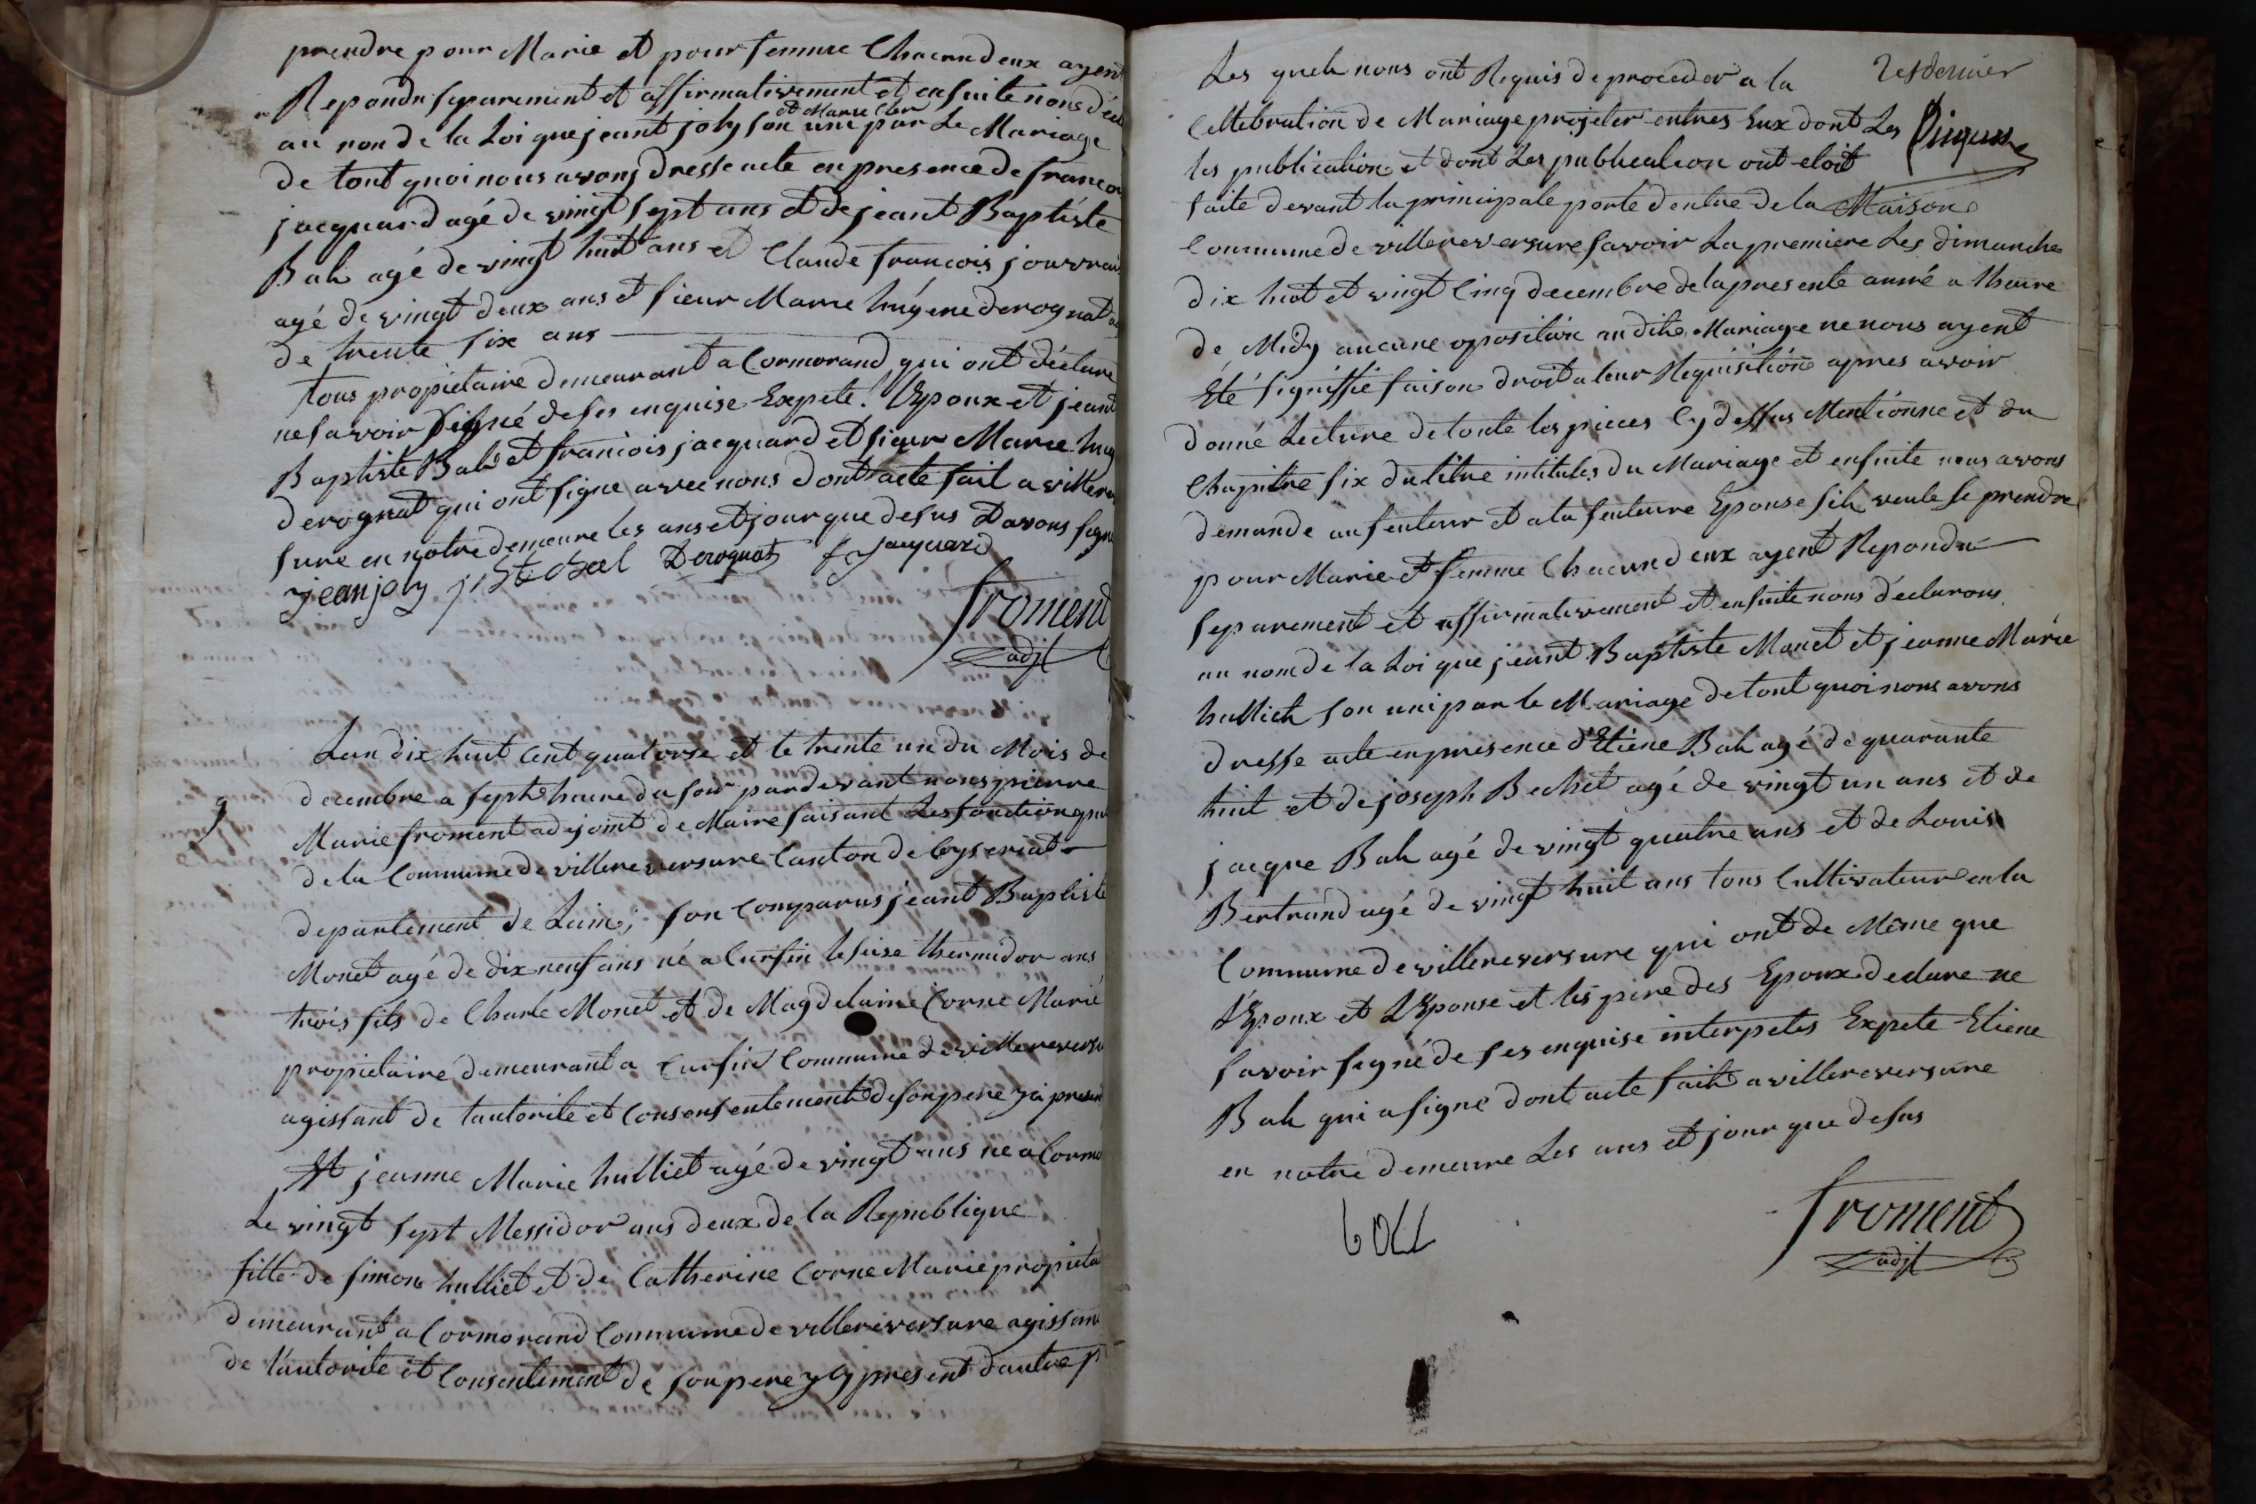 prendre pour Marie et pour femme Chacun deux ayent
Repondu separement et affirmativement et ensuite nous
et Marie Cler
au non de la Loi que jeant joly son uni par Le Mariage
de tout quoi nous avons dresse acte en presence de
jacquard agé de vingt sept ans et de jeant Baptiste
Bah agé de vingt huit ans et Claude francois
agé de vingt deux ans et sieur Marie hugene derognat
de trente six ans
tous propietaire demeurant a Cormorand qui ont déclare
ne savoir signé de ses enquise Expete. l'Epoux et jeant
Baptiste Bah et francois jacquard et sieur Marie
derognat qui ont signe avec nous dont acte fait a
sure en notre demeure les ans et jour que desus Et avons
jean joly Derognat f jacquard
froment
adjt
Lan dix huit Cent quatorse et le trente un du Mois de
9
decembre a sept heure du soir pardevant nous pierre
Marie froment adjoint de Maire faisant Les fonction
de la Commune de villereversure Canton de Ceyseriat
departement de Lain; son Comparus jeant Baptiste
Monet agé de dix neuf ans né a Cursin le seise thermidor ans
trois fils de Charle Monet et de Magdelaine Corne Marié
propietaire demeurant a Cursin Commune de
agissant de tautorite et Consentement de son pere
Et jeanne Marie hulliet agé de vingt ans né a
Le vingt sept Messidor ans deux de la Republique
fille de simon hulliet et de Catherine Corne Marié
demeurant a Cormorand Commune de villereversure
de l'autorite et Consentement de son pere y Cy present dautre
Les queh nous ont Requis de proceder a la
Celtebration de Mariage projeter entres Eux dont Les
les publication et dont Les publication ont etoit
faite devant la principale porte dentre de la Maison
Commune de villereversure savoir La premiere Les dimanche
dix huit et vingt Cinq decembre de la presente anné a lheure
de Midy aucune oposition au dite Mariage ne nous ayent
Eté signiffié faison droit a leur Requisition apres avoir
donné Lecture de toute les pieces Cy dessus Mentionne et du
Chapitre six du titre intitules du Mariage et ensuite nous avons
demande au feuteur et a la feuteure Epouse sih veule se prendre
pour Marie et femme Chacun deux ayent Repondu
separement et affirmativement et ensuite nous déclarons
au nom de la Loi que jeant Baptiste Monet et jeanne Marie
hulliet son uni par le Mariage de tout quoi nous avons
dresse acte en presence d'Etiene Bah agé de quarante
huit et de joseph Bechet agé de vingt un ans et de
jacque Bah agé de vingt quatre ans et de Louis
Bertrand agé de vingt huit ans tous Cultivateur en la
Commune de villereversure qui ont de Même que
l'Epoux et L'Epouse et les pere des Epoux declare ne
savoir signé de ses enquise interpetes Expete Etiene
Bah qui a signé dont acte fait a villereversure
en notre demeure Les ans et jour que desus
froment
adjt